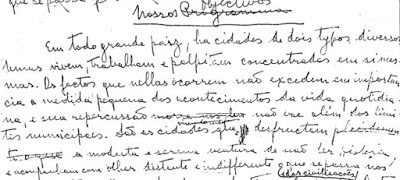 que se passa
objectivos
Nossos Programma
Em todo grande paiz, ha cidades de dois typos diversos
Umas vivem, trabalham e palpitam concentradas em si mes-
mas. Os factos que nellas ocorrem não excedem em importan-
cia a medida pequena dos acontecimentos da vida quotidia-
na, e sua repercussão não vae além dos limi-
tes municipaes. São as cidades que desfructam
a modesta e serena ventura de não ter historia
e acompanham com olhar distante e indifferente o que
das civilizações